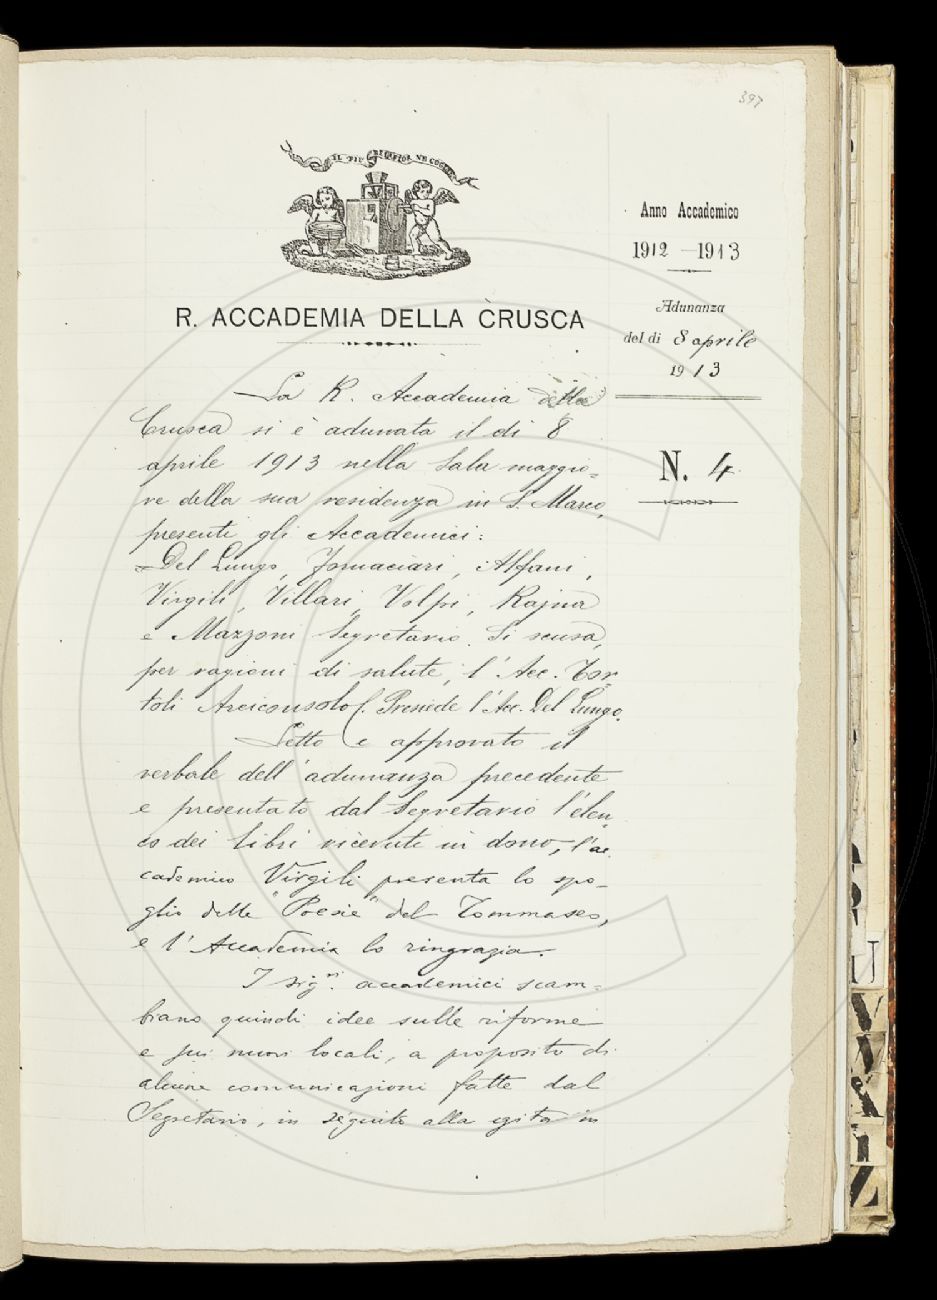 397
IL PIÙ BEL FIOR NE COGLIE
Anno Accademico
1912 - 1913
Adunanza
del dì 8 aprile
1913
N. 4
R. ACCADEMIA DELLA CRUSCA
La R. Accademia della
Crusca si è adunata il dì 8
aprile 1913 nella Sala maggio=
re della sua residenza in S. Marco,
presenti gli Accademici:
Del Lungo, Fornaciari, Alfani,
Virgili, Villari, Volpi, Rajna
e Mazzoni Segretario. Si scusa,
per ragioni di salute, l'Acc. Tor
toli Arciconsolo. Presiede l'Acc. Del Lungo.
Letto e approvato il
verbale dell'adunanza precedente
e presentato dal Segretario l'elen
co dei libri ricevuti in dono, l'ac
cademico Virgili presenta lo spo-
glio delle "Poesie" del Tommaseo,
e l'Accademia lo ringrazia.
I sig.ri accademici scam=
biano quindi idee sulle riforme
e sui nuovi locali, a proposito di
alcune comunicazioni fatte dal
Segretario, in seguito alla gita in
U
V
X
Z